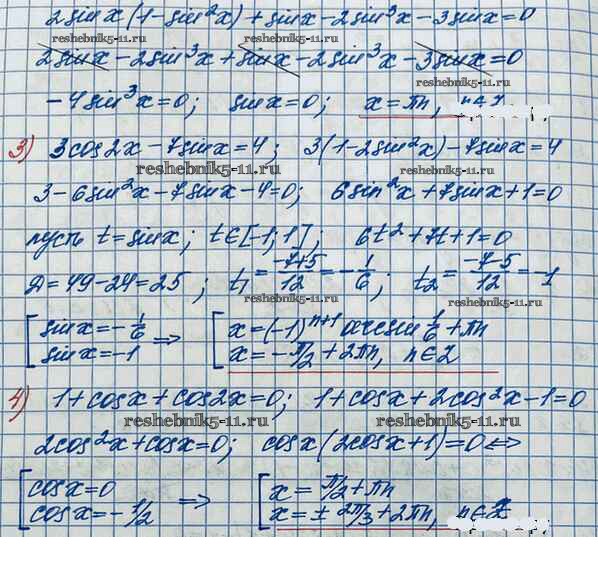 2sinx(1-sin²x)+sinx-2sin³x-3sinx=0
reshebnik5-11.ru
2sinx-2sin³x+sinx-2sin³x-3sinx=0
reshebnik5-11.ru
-4sin³x=0; sinx=0; x=πn, n∈Z
3) 3cos2x-7sinx=4; 3(1-2sin²x)-7sinx=4
reshebnik5-11.ru reshebnik5-11.ru
3-6sin²x-7sinx-4=0; 6sin²x+7sinx+1=0
пусть t=sinx; t∈[-1;1]; 6t²+7t+1=0
D=49-24=25; t₁=(-7+5)/12=-1/6; t₂=(-7-5)/12=-1
reshebnik5-11.ru reshebnik5-11.ru
[sinx=-1/6 => [x=(-1)ⁿ⁺¹arcsin 1/6+πn
sinx=-1 x=-π/2+2πn, n∈Z
4) 1+cosx+cos2x=0; 1+cosx+2cos²x-1=0
reshebnik5-11.ru reshebnik5-11.ru
2cos²x+cosx=0; cosx(2cosx+1)=0 <=>
[cosx=0 => [x=π/2+πn
cosx=-1/2 x=±2π/3+2πn, n∈Z